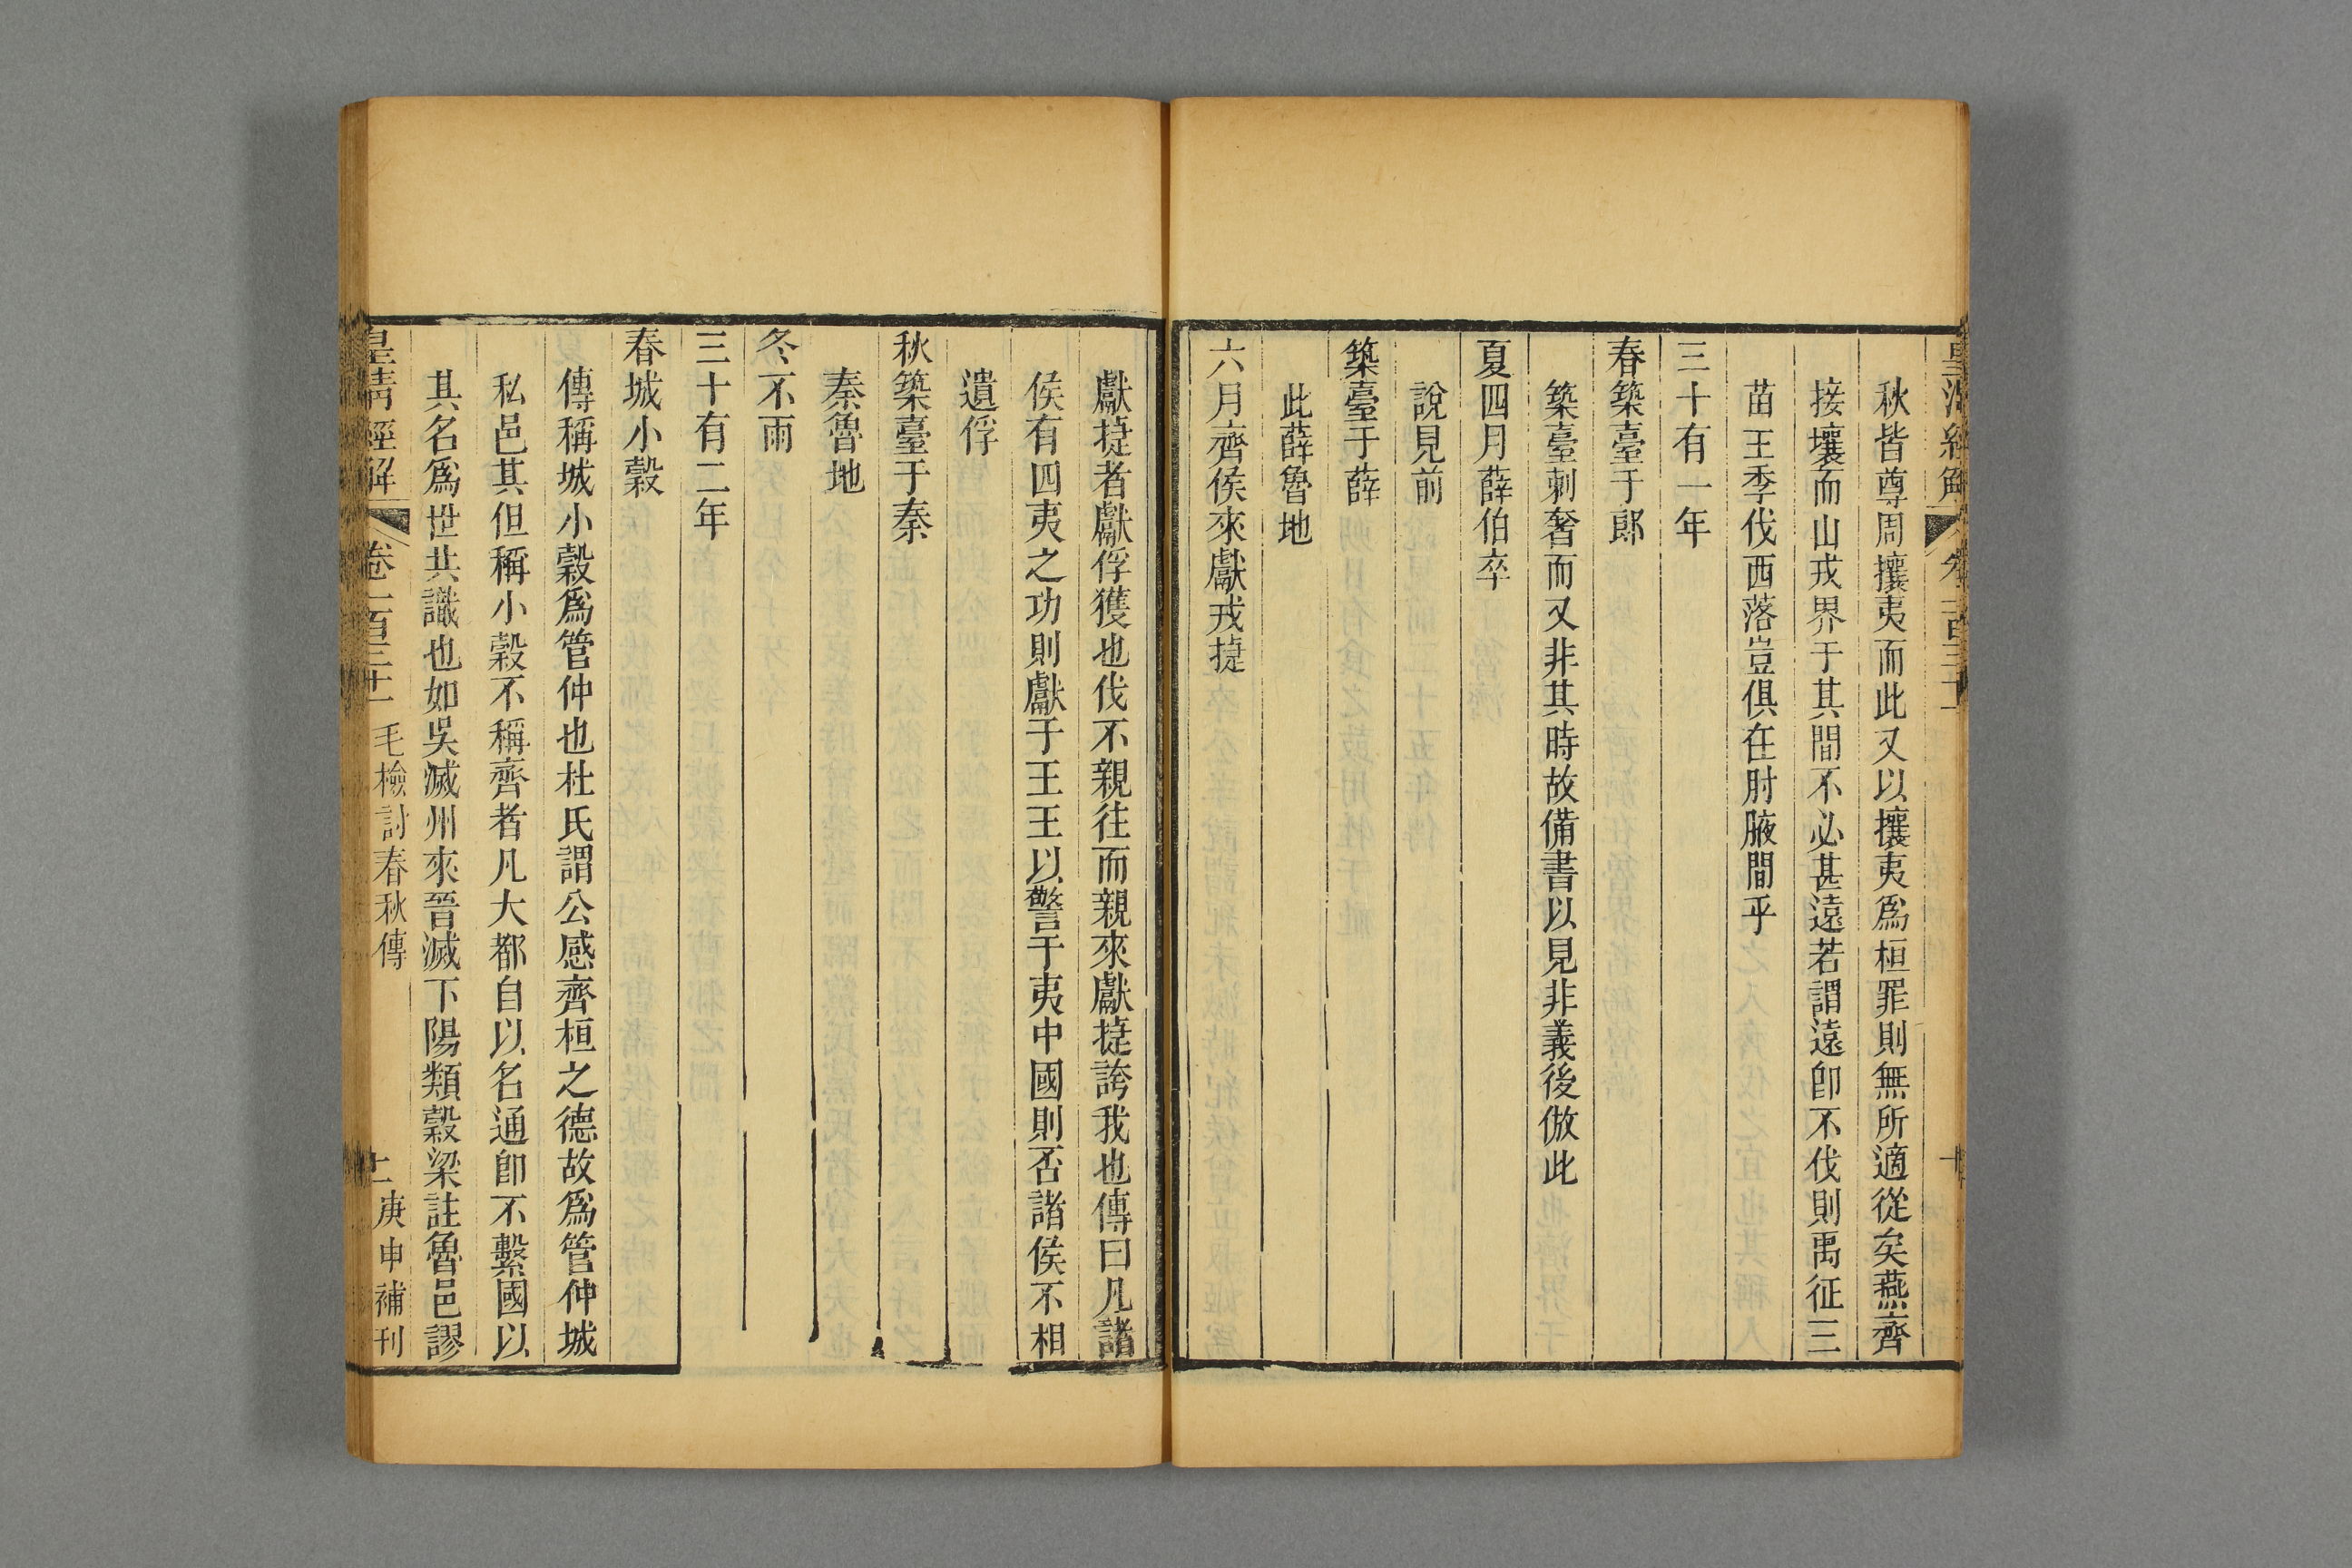 秋皆尊周攘夷而此又以攘夷爲桓罪則無所適從矣燕齊
接壤而山戎界于其間不必甚遠若謂遠卽不伐則禹征三
苗王季伐西落豈俱在肘腋間乎
三十有一年
春築臺于郎
築臺刺奢而又非其時故備書以見非義後倣此
夏四月薛伯卒
說見前
築臺于薛
此薛魯地
六月齊侯來獻戎捷
獻捷者獻俘獲也伐不親往而親來獻捷誇我也傳曰凡諸
侯有四夷之功則獻于王王以警于夷中國則否諸侯不相
遺俘
秋築臺于秦
秦魯地
冬不雨
三十有二年
春城小穀
傳稱城小穀爲管仲也杜氏謂公感齊桓之德故爲管仲城
私邑其但稱小穀不稱齊者凡大都自以名通卽不繫國以
其名爲世共識也如吳滅州來晉滅下陽類穀梁註魯邑謬
皇清經解 卷一百三十一 毛檢討春秋傳 庚申補刊